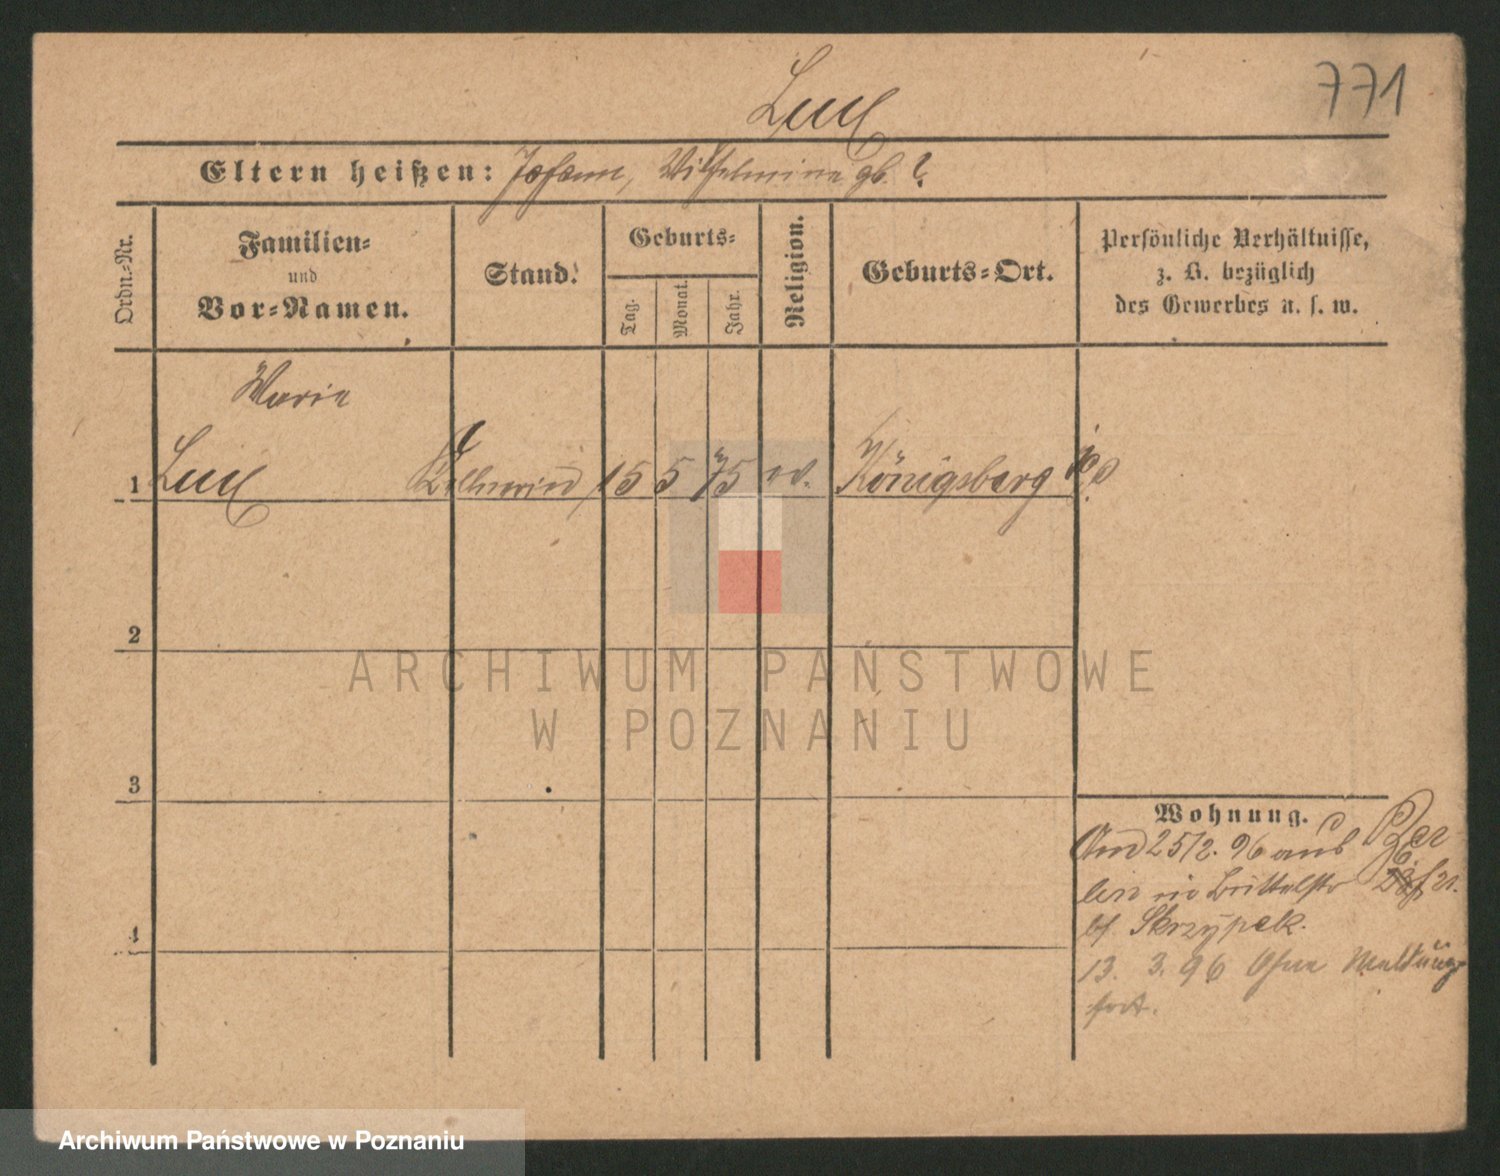 771
Eltern heißen: Johann, Wilhelmine gb. ?
Ordn.=Nr.
Familien=
und
Vor=Namen.
Stand.
Geburts=
Tag.
Monat.
Jahr.
Religion.
Geburts=Ort.
Persönliche Verhältnisse,
z. B. bezüglich
des Gewerbes u. s. w.
Marie
1 Kellnerin 15 5 75 Königsberg
2
3
4
Wohnung.
25/2. 96 aus Ber
lin in
bei Skrzypek.
13. 3. 96 Ohne Meldung
fort.
ARCHIWUM PAŃSTWOWE
W POZNANIU
Archiwum Państwowe w Poznaniu